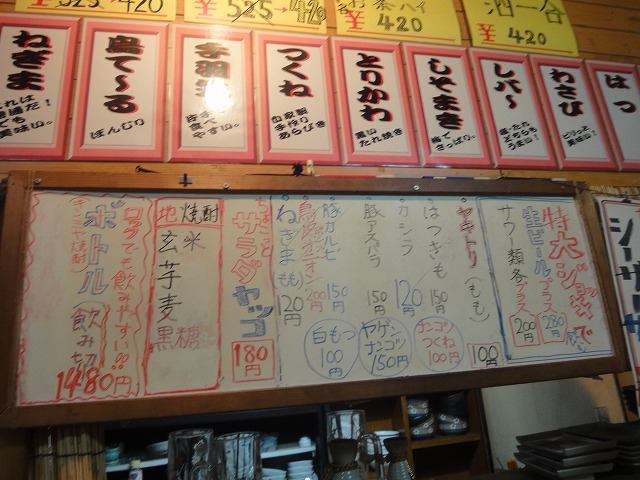 ¥525→420
¥525→420
茶ハイ
¥420
酒一合
¥420
ねぎま
美味い。
鳥て〜る
ぼんじり
手羽先
食べ
やすい。
つくね
自家製
手作り
あらびき
とりかわ
たれ焼き
しそまき
梅で
さっぱり。
レバ〜
塩・たれ
どちらも
うまい!
わさび
ピリッと
美味い!
はつ
特大ジョッキで
生ビールプラス280円
サワー類各プラス200円
ヤキトリ(もも)100円
はつきも150円
ナンコツ
つくね
100円
カシラ120円
豚アスパラ150円
ヤゲン
ナンコツ
150円
豚カルビ150円
200円
白もつ
100円
ねぎま(もも)120円
サラダヤッコ180円
地焼酎
米
玄
芋
麦
黒糖
ロックでも飲みやすい!!
ボトル(飲み切)1480円
(キンミヤ焼酎)
シーザ